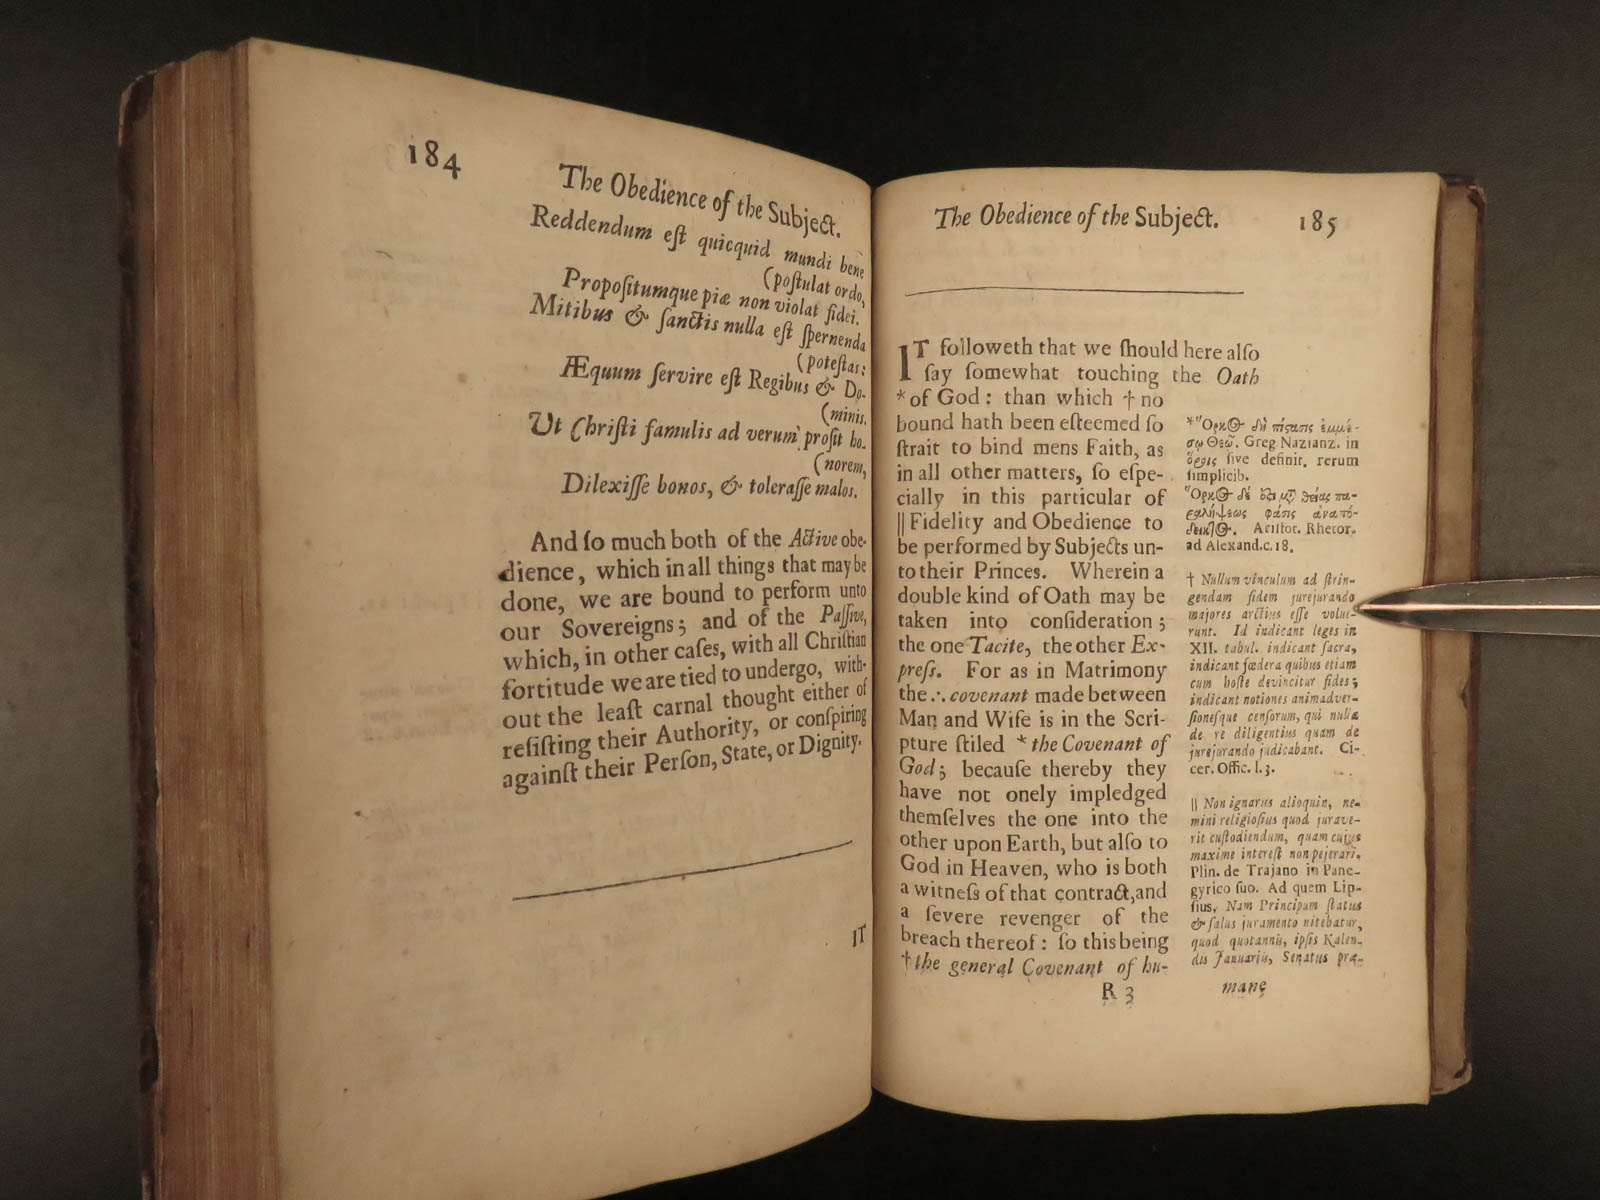 184
The Obedience of the Subject.
Reddendum eſt quicquid mundi bene
(poſtulat ordo,
Propoſitumque piæ non violat fidei.
Mitibus & ſanctis nulla eſt ſpernenda
(poteſtas:
Æquum ſervire eſt Regibus & Do-
(minis,
Ut Chriſti famulis ad verum proſit ho-
(norem,
Dilexiſſe bonos, & toleraſſe malos.
And ſo much both of the Active obe-
dience, which in all things that may be
done, we are bound to perform unto
our Sovereigns; and of the Paſſive,
which, in other caſes, with all Chriſtian
fortitude we are tied to undergo, with-
out the leaſt carnal thought either of
reſiſting their Authority, or conſpiring
againſt their Perſon, State, or Dignity.
IT
The Obedience of the Subject. 185
IT followeth that we ſhould here alſo
ſay ſomewhat touching the Oath
* of God: than which † no
bound hath been eſteemed ſo
ſtrait to bind mens Faith, as
in all other matters, ſo eſpe-
cially in this particular of
|| Fidelity and Obedience to
be performed by Subjects un-
to their Princes. Wherein a
double kind of Oath may be
taken into conſideration;
the one Tacite, the other Ex-
preſs. For as in Matrimony
the ∴ covenant made between
Man and Wife is in the Scri-
pture ſtiled * the Covenant of
God; becauſe thereby they
have not onely impledged
themſelves the one into the
other upon Earth, but alſo to
God in Heaven, who is both
a witneſs of that contract, and
a ſevere revenger of the
breach thereof: ſo this being
† the general Covenant of hu-
R 3
* Ὅρκος δὴ πίστις ἐμμέ-
σῳ Θεῷ. Greg Nazianz. in
ὅροις ſive definit. rerum
ſimplicib.
Ὅρκος δέ ἐστι μετὰ θείας πα-
ραλήψεως φάσις ἀναπό-
δεικτος. Ariſtot. Rhetor.
ad Alexand. c. 18.
† Nullum vinculum ad ſtrin-
gendam fidem jurejurando
majores arctius eſſe volue-
runt. Id indicant leges in
XII. tabul. indicant ſacra,
indicant fœdera quibus etiam
cum hoſte devincitur fides;
indicant notiones animadver-
ſioneſque cenſorum, qui nulla
de re diligentius quam de
jurejurando judicabant. Ci-
cer. Offic. l. 3.
|| Non ignarus alioquin, ne-
mini religioſius quod jurave-
rit cuſtodiendum, quam cujus
maxime intereſt non pejerari.
Plin. de Trajano in Pane-
gyrico ſuo. Ad quem Lip-
ſius, Nam Principum ſtatus
& ſalus juramento nitebatur,
quod quotannis, ipſis Kalen-
dis Januariis, Senatus præ-
mane